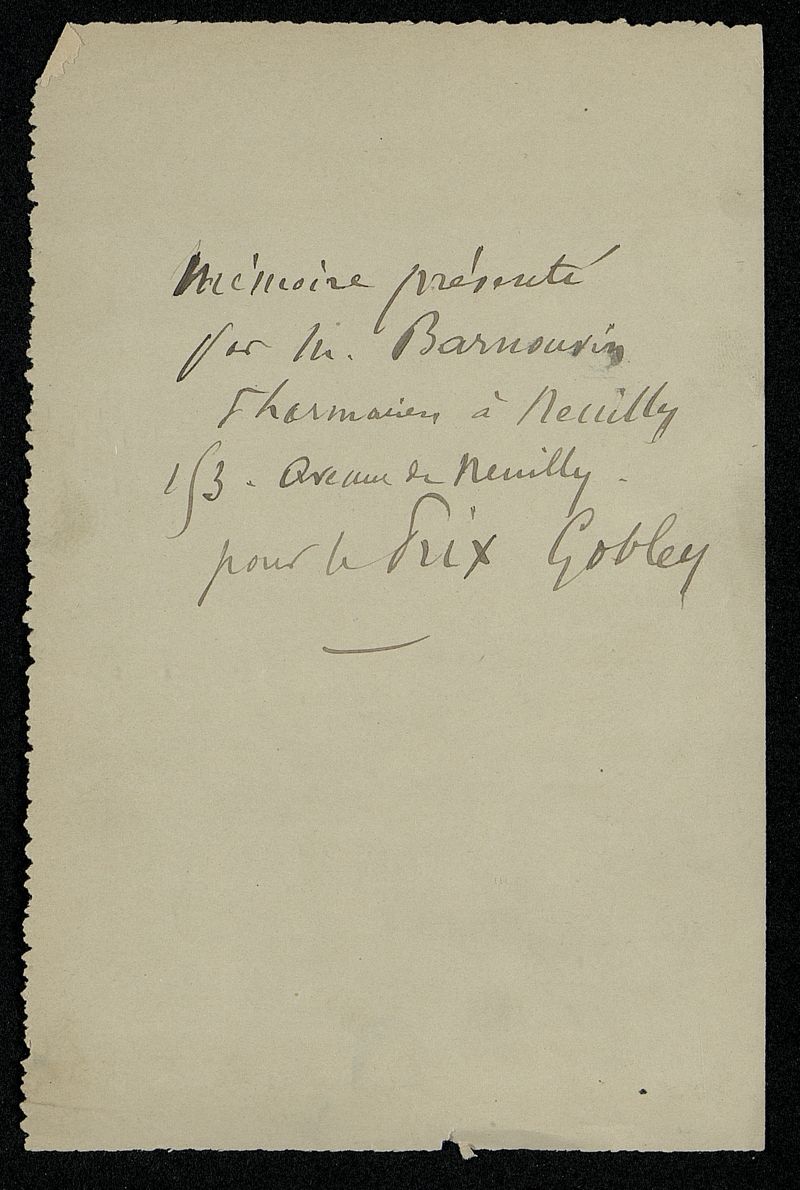 Mémoire présenté
par M. Barnouvin
Pharmacien à Neuilly
153. Avenue de Neuilly.
pour le Prix Gobley